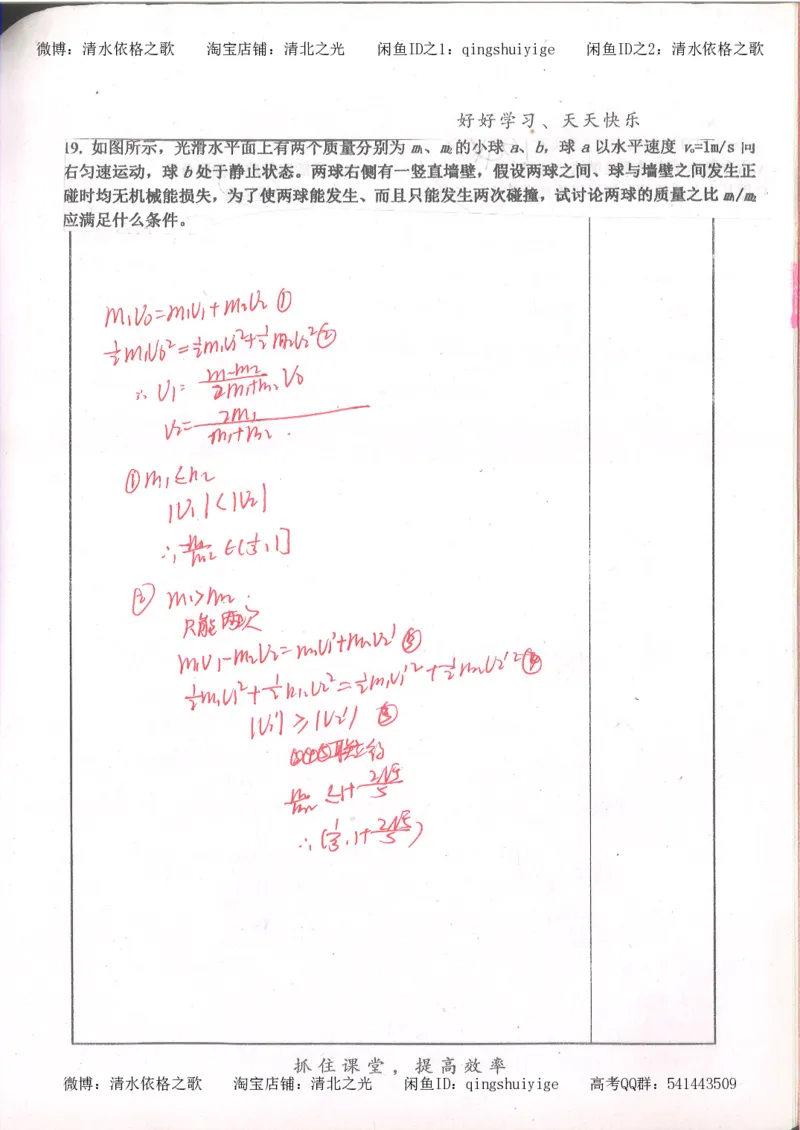 微博：清水依格之歌 淘宝店铺：清北之光 闲鱼ID之1：qingshuiyige 闲鱼ID之2：清水依格之歌
好好学习、天天快乐
19. 如图所示，光滑水平面上有两个质量分别为 m₁、m₂的小球 a、b，球 a 以水平速度 v₀=1m/s 向
右匀速运动，球 b 处于静止状态。两球右侧有一竖直墙壁，假设两球之间、球与墙壁之间发生正
碰时均无机械能损失，为了使两球能发生、而且只能发生两次碰撞，试讨论两球的质量之比 m₁/m₂
应满足什么条件。
m₁v₀=m₁v₁+m₂v₂ ①
½m₁v₀²=½m₁v₁²+½m₂v₂² ②
∴ v₁= v₀
v₂= 2m₁/(m₁+m₂)
① m₁≤m₂
|v₁|<|v₂|
∴ m₁/m₂ ∈(⅓,1]
② m₁>m₂.
只能两次
m₁v₁-m₂v₂=m₁v₁'+m₂v₂' ③
½m₁v₁²+½m₂v₂²=½m₁v₁'²+½m₂v₂'² ④
|v₁'|≥|v₂'| ⑤
联立得
m₁/m₂ ≤1+2√5/5
∴(⅓,1+2√5/5)
抓住课堂，提高效率
微博：清水依格之歌 淘宝店铺：清北之光 闲鱼ID：qingshuiyige 高考QQ群：541443509